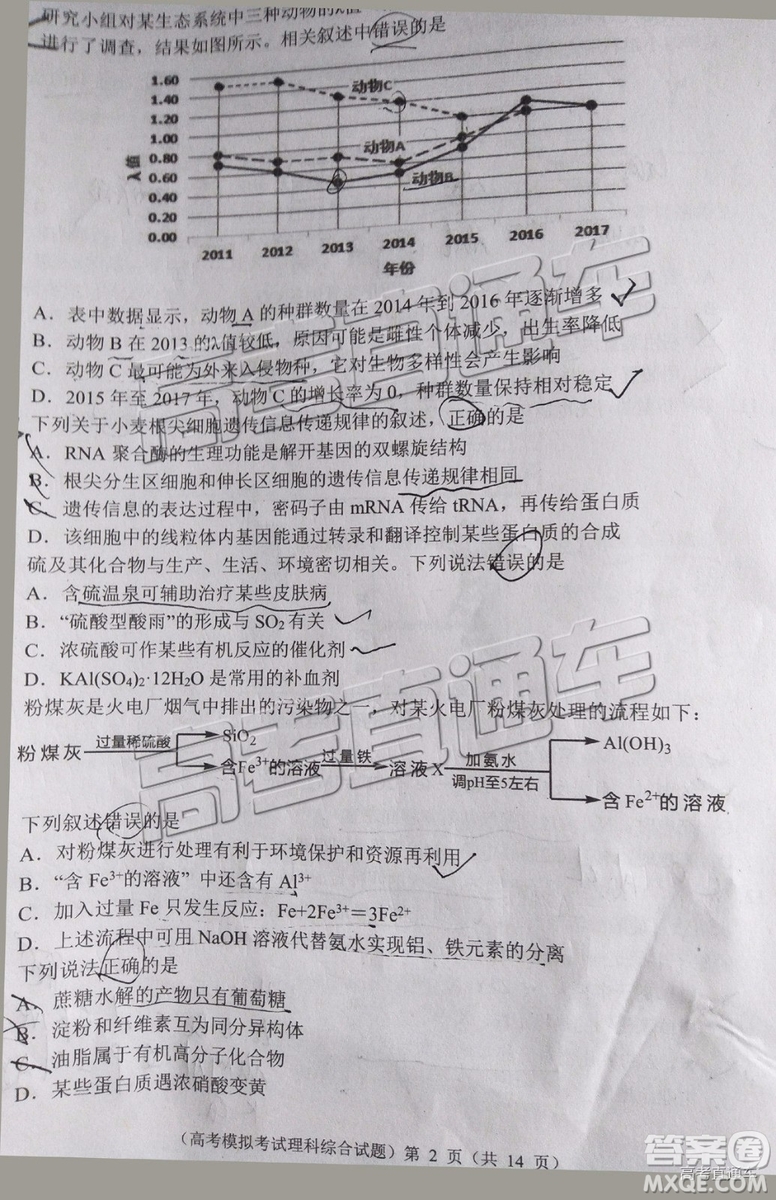 研究小组对某生态系统中三种动物的λ值
进行了调查，结果如图所示。相关叙述中错误的是
1.60
1.40
1.20
1.00
0.80
0.60
0.40
0.20
0.00
λ值
动物C
动物A
动物B
2011 2012 2013 2014 2015 2016 2017
年份
A．表中数据显示，动物 A 的种群数量在 2014 年到 2016 年逐渐增多
B．动物 B 在 2013 的λ值较低，原因可能是雌性个体减少，出生率降低
C．动物 C 最可能为外来入侵物种，它对生物多样性会产生影响
D．2015 年至 2017 年，动物 C 的增长率为 0，种群数量保持相对稳定
下列关于小麦根尖细胞遗传信息传递规律的叙述，正确的是
A．RNA 聚合酶的生理功能是解开基因的双螺旋结构
B．根尖分生区细胞和伸长区细胞的遗传信息传递规律相同
C．遗传信息的表达过程中，密码子由 mRNA 传给 tRNA，再传给蛋白质
D．该细胞中的线粒体内基因能通过转录和翻译控制某些蛋白质的合成
硫及其化合物与生产、生活、环境密切相关。下列说法错误的是
A．含硫温泉可辅助治疗某些皮肤病
B．“硫酸型酸雨”的形成与 SO₂ 有关
C．浓硫酸可作某些有机反应的催化剂
D．KAl(SO₄)₂·12H₂O 是常用的补血剂
粉煤灰是火电厂烟气中排出的污染物之一，对某火电厂粉煤灰处理的流程如下：
粉煤灰 过量稀硫酸 SiO₂ 含Fe³⁺的溶液 过量铁 溶液X 加氨水 调pH至5左右 Al(OH)₃ 含 Fe²⁺的溶液
下列叙述错误的是
A．对粉煤灰进行处理有利于环境保护和资源再利用
B．“含 Fe³⁺的溶液” 中还含有 Al³⁺
C．加入过量 Fe 只发生反应：Fe+2Fe³⁺＝3Fe²⁺
D．上述流程中可用 NaOH 溶液代替氨水实现铝、铁元素的分离
下列说法正确的是
A．蔗糖水解的产物只有葡萄糖
B．淀粉和纤维素互为同分异构体
C．油脂属于有机高分子化合物
D．某些蛋白质遇浓硝酸变黄
（高考模拟考试理科综合试题）第 2 页（共 14 页）
高考直通车
高考直通车
高考直通车
答案圈
MXQE.COM